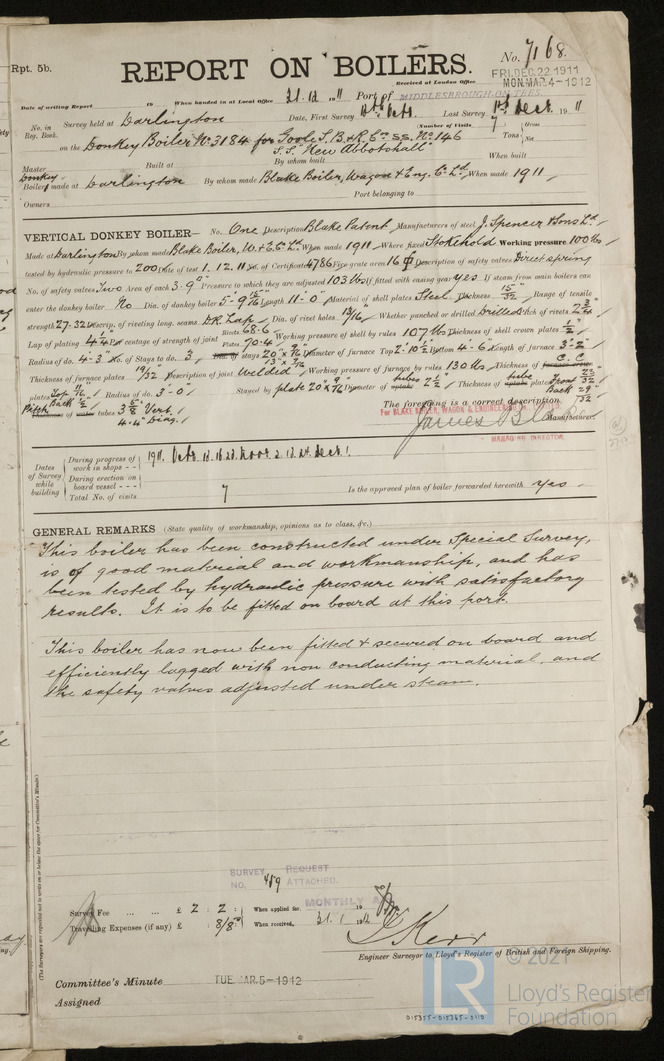 Rpt. 5b.
REPORT ON BOILERS.
No. 7168
Received at London Office
FRI. DEC. 22 1911
MON. MAR. 4-1912
Date of writing Report 19 When handed in at Local Office 21.12.1911 Port of MIDDLESBROUGH-ON-TEES.
No. in Reg. Book. Survey held at Darlington Date, First Survey Octr. Last Survey Decr. 1911
(Number of Visits 7)
on the Donkey Boiler No. 3184 for Goole S. B. & R. Co. ss. No. 146
S.S. "New Abbotshall"
Tons Gross Net
Master Built at By whom built When built
Donkey Boilers made at Darlington By whom made Blake Boiler, Wagon & Eng. Co. Ld. When made 1911
Owners Port belonging to
VERTICAL DONKEY BOILER— No. One Description Blake Patent Manufacturers of steel J. Spencer & Sons Ld.
Made at Darlington By whom made Blake Boiler, W. & E. Co. Ld. When made 1911 Where fixed Stokehold Working pressure 100 lbs
tested by hydraulic pressure to 200 Date of test 1.12.11 No. of Certificate 4786 Fire grate area 16 Description of safety valves Direct spring
No. of safety valves Two Area of each 3.9" Pressure to which they are adjusted 103 lbs If fitted with easing gear yes If steam from main boilers can
enter the donkey boiler No Dia. of donkey boiler 5'-9 15/16" Length 11-0 Material of shell plates Steel Thickness 15/32" Range of tensile
strength 27-32 Descrip. of riveting long. seams D.R. Lap Dia. of rivet holes 13/16" Whether punched or drilled Drilled Pitch of rivets 2 3/4"
Lap of plating 4 1/4" Per centage of strength of joint Rivets 68.6 Plates 70.4 Working pressure of shell by rules 107 lbs Thickness of shell crown plates 1/2"
Radius of do. 4'-3" No. of Stays to do. 3 Dia. of stays 20" x 9/16" 13" x 9/16" Diameter of furnace Top 2'-10 1/2" Bottom 4'-6" Length of furnace 3'-2"
Thickness of furnace plates 19/32" Description of joint Welded Working pressure of furnace by rules 130 lbs Thickness of furnace crown C. C.
plates Top 11/16" Back 1/2" Radius of do. 3'-0" Stayed by plate 20" x 9/16" Diameter of uptake tubes 2 1/2" Thickness of uptake tube plates Front 22/32 Back 29/32
Pitch Thickness of water tubes 3 5/8" Vert. 4.4" Diag.
The foregoing is a correct description,
For BLAKE BOILER, WAGON & ENGINEERING CO. LIMITED
James Blake Manufacturer.
MANAGING DIRECTOR
Dates of Survey while building
During progress of work in shops - - 1911. Octr. 12. 16. 23. Novr. 2. 13. 24. Decr. 1.
During erection on board vessel - - -
Total No. of visits 7
Is the approved plan of boiler forwarded herewith yes
GENERAL REMARKS (State quality of workmanship, opinions as to class, &c.)
This boiler has been constructed under Special Survey,
is of good material and workmanship, and has
been tested by hydraulic pressure with satisfactory
results. It is to be fitted on board at this port.
This boiler has now been fitted & secured on board and
efficiently lagged with non conducting material, and
the safety valves adjusted under steam.
(The Surveyors are requested not to write on or below the space for Committee's Minute.)
SURVEY REQUEST
NO. 459 ATTACHED.
MONTHLY A
Survey Fee ... ... £ 2 : 2 : When applied for, 19
Travelling Expenses (if any) £ 8/8 When received, 31.1.1912
Kerr
Engineer Surveyor to Lloyd's Register of British and Foreign Shipping.
Committee's Minute TUE. MAR. 5-1912
Assigned
LR
© 2021
Lloyd's Register
Foundation
015355-015365-0110